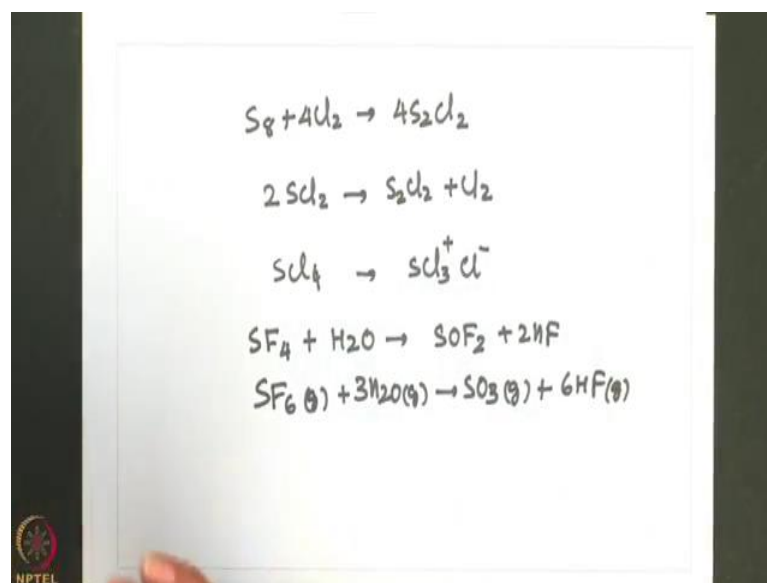 S8 + 4Cl2 → 4S2Cl2
2 SCl2 → S2Cl2 + Cl2
SCl4 → SCl3+ Cl-
SF4 + H2O → SOF2 + 2HF
SF6 (g) + 3H2O(g) → SO3 (g) + 6HF(g)
NPTEL